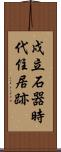 戌立石器時
代住居跡